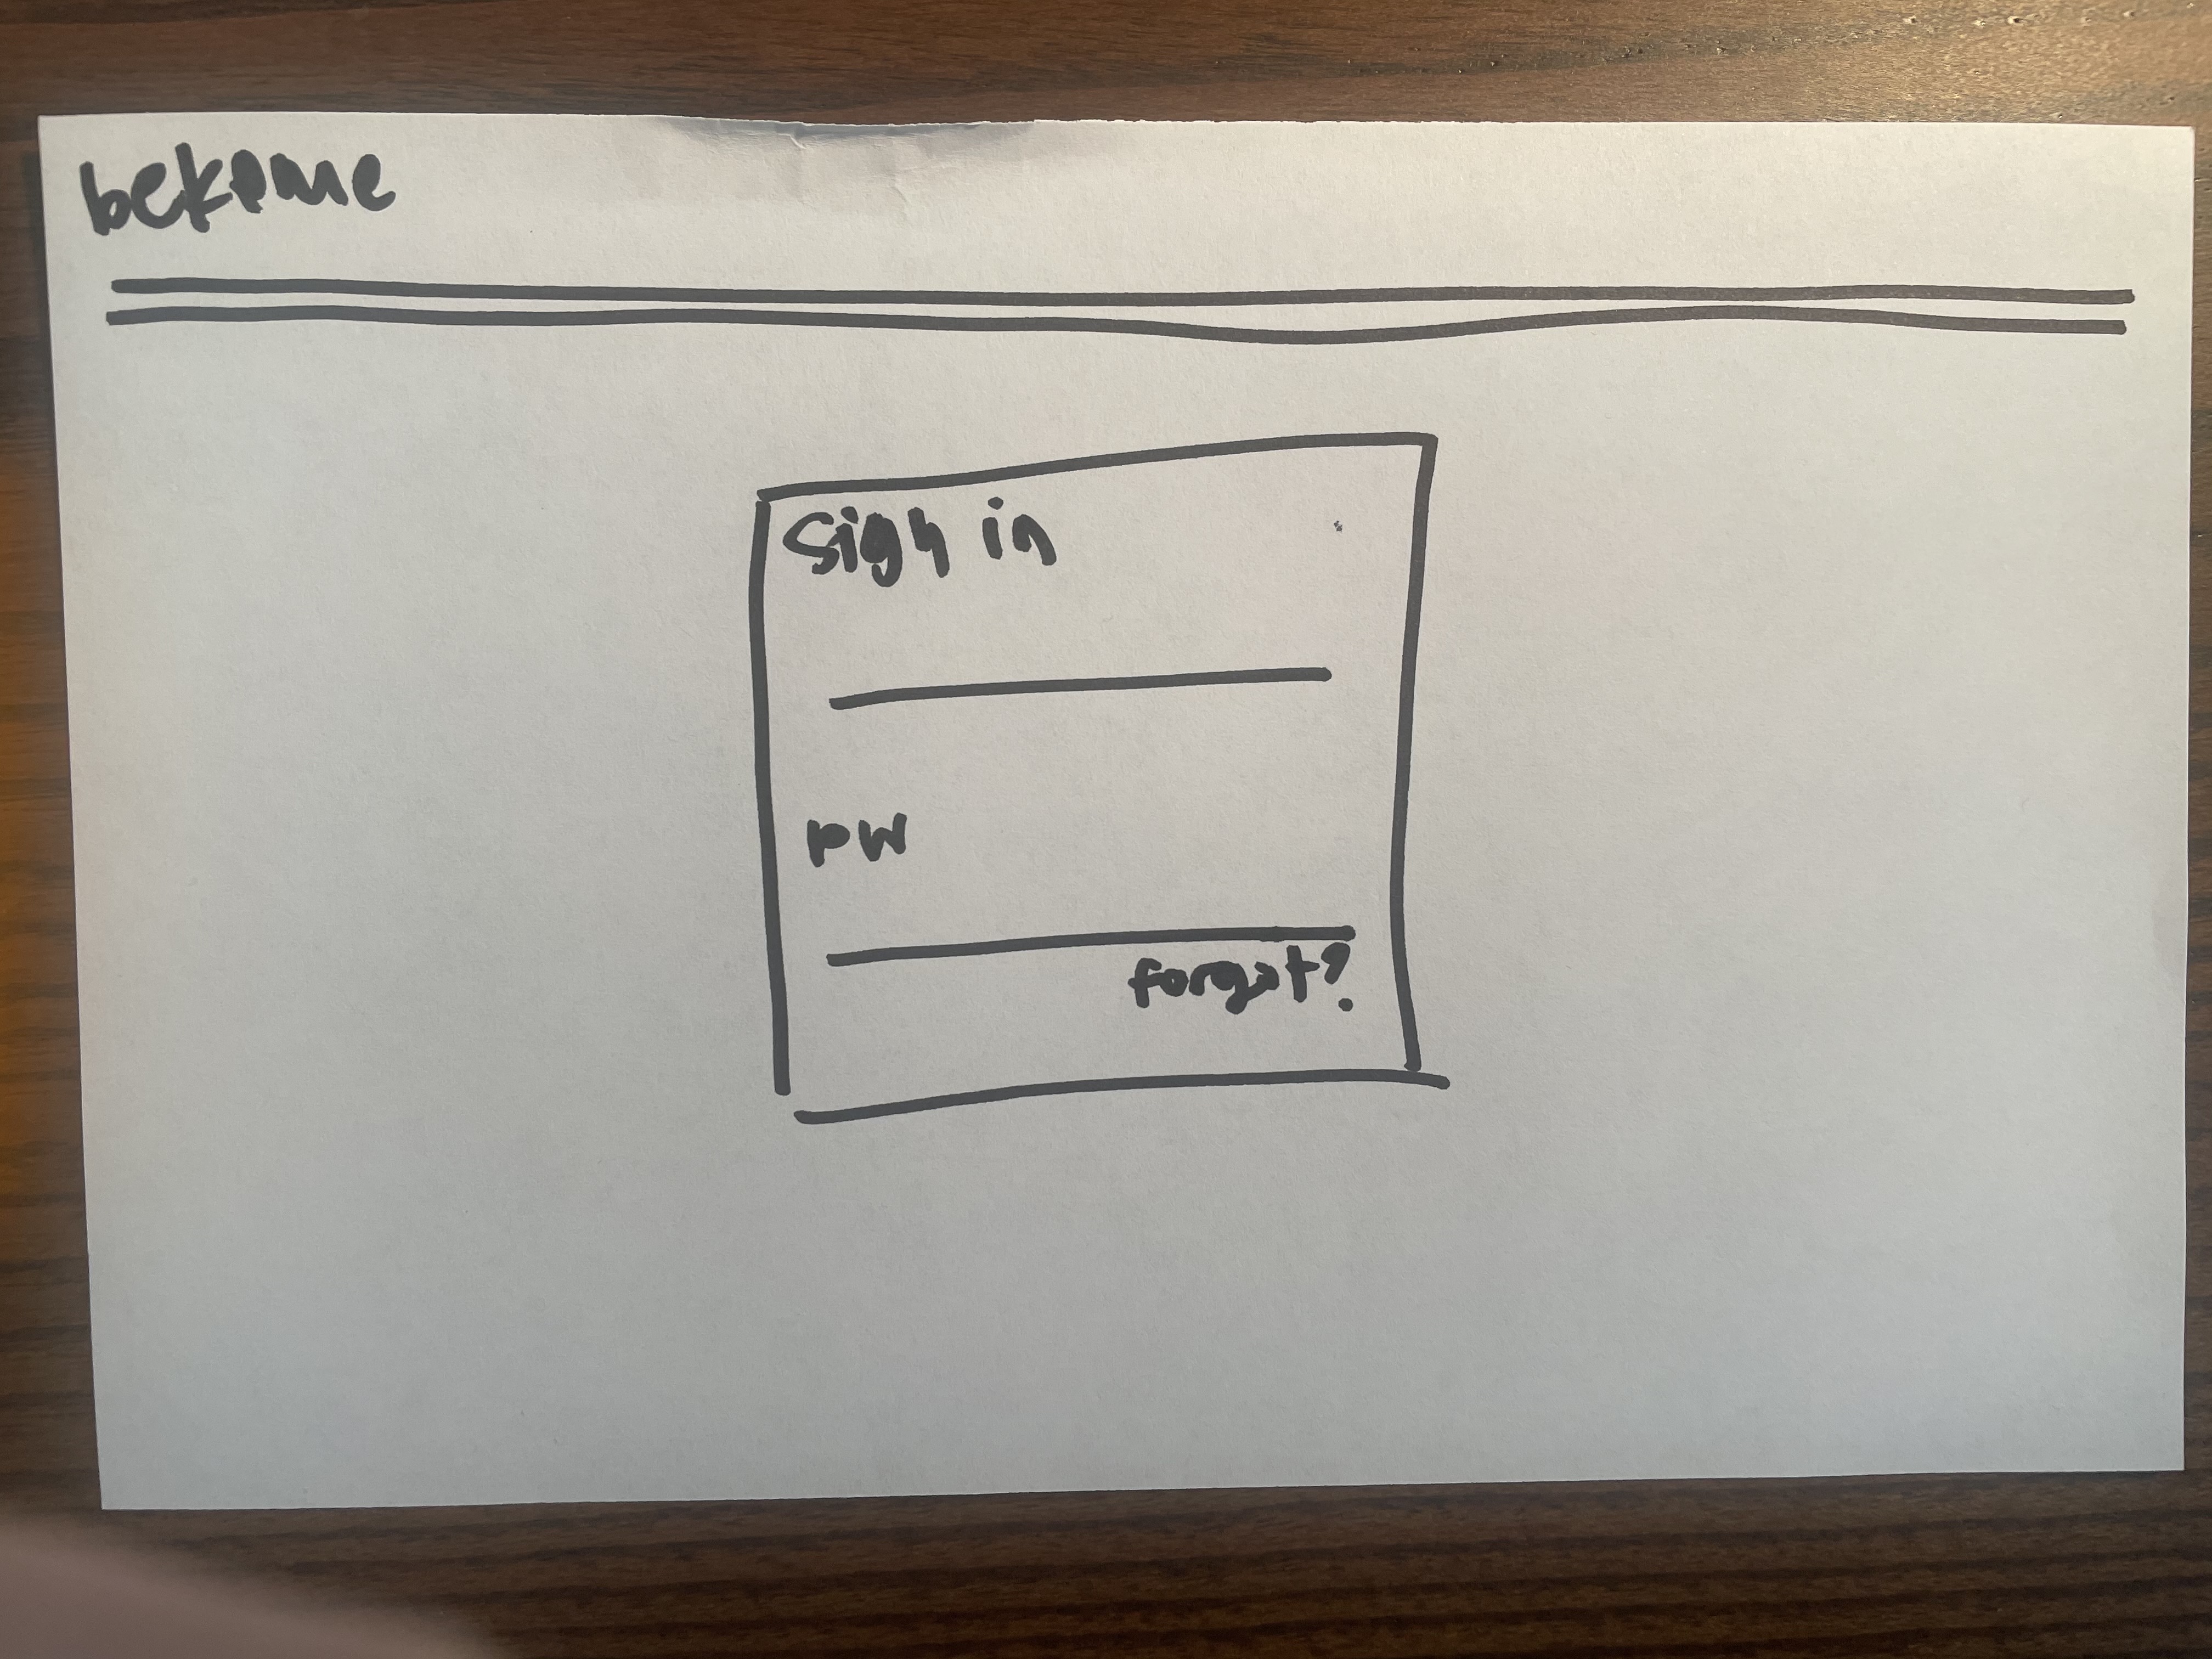 bekome
Sign in
pw
forgot?